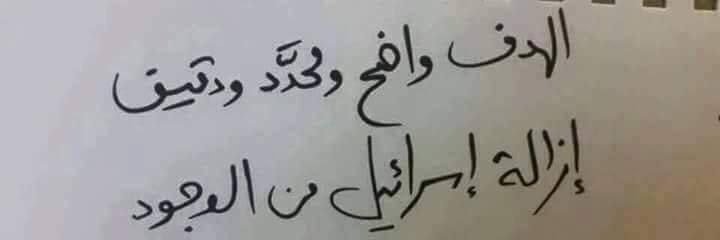 الهدف واضح ومحدَّد ودقيق
إزالة إسرائيل من الوجود